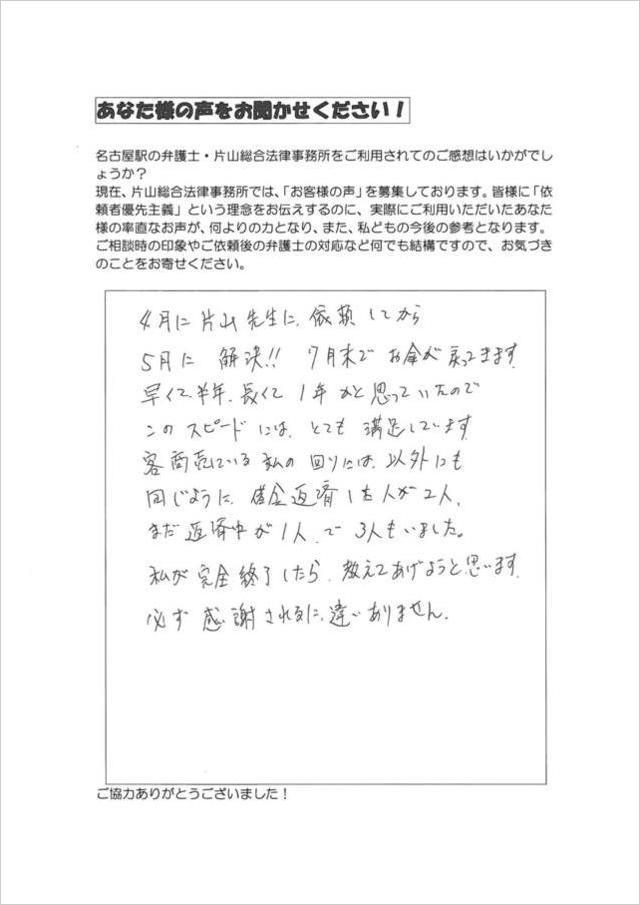 あなた様の声をお聞かせください！
名古屋駅の弁護士・片山総合法律事務所をご利用されてのご感想はいかがでし
ょうか？
現在、片山総合法律事務所では、「お客様の声」を募集しております。皆様に「依
頼者優先主義」という理念をお伝えするのに、実際にご利用いただいたあなた
様の率直なお声が、何よりの力となり、また、私どもの今後の参考となります。
ご相談時の印象やご依頼後の弁護士の対応など何でも結構ですので、お気づき
のことをお寄せください。
4月に片山先生に、依頼してから
5月に 解決!! 7月末で お金が戻ってきます
早くて半年、長くて1年かと思っていたので
このスピードには、とても 満足しています
客商売にいる私の回りには、以外にも
同じように、借金返済した人が2人、
まだ返済中が1人、で3人もいました。
私が完全終了したら、教えてあげようと思います。
必ず感謝されるに違いありません。
ご協力ありがとうございました！